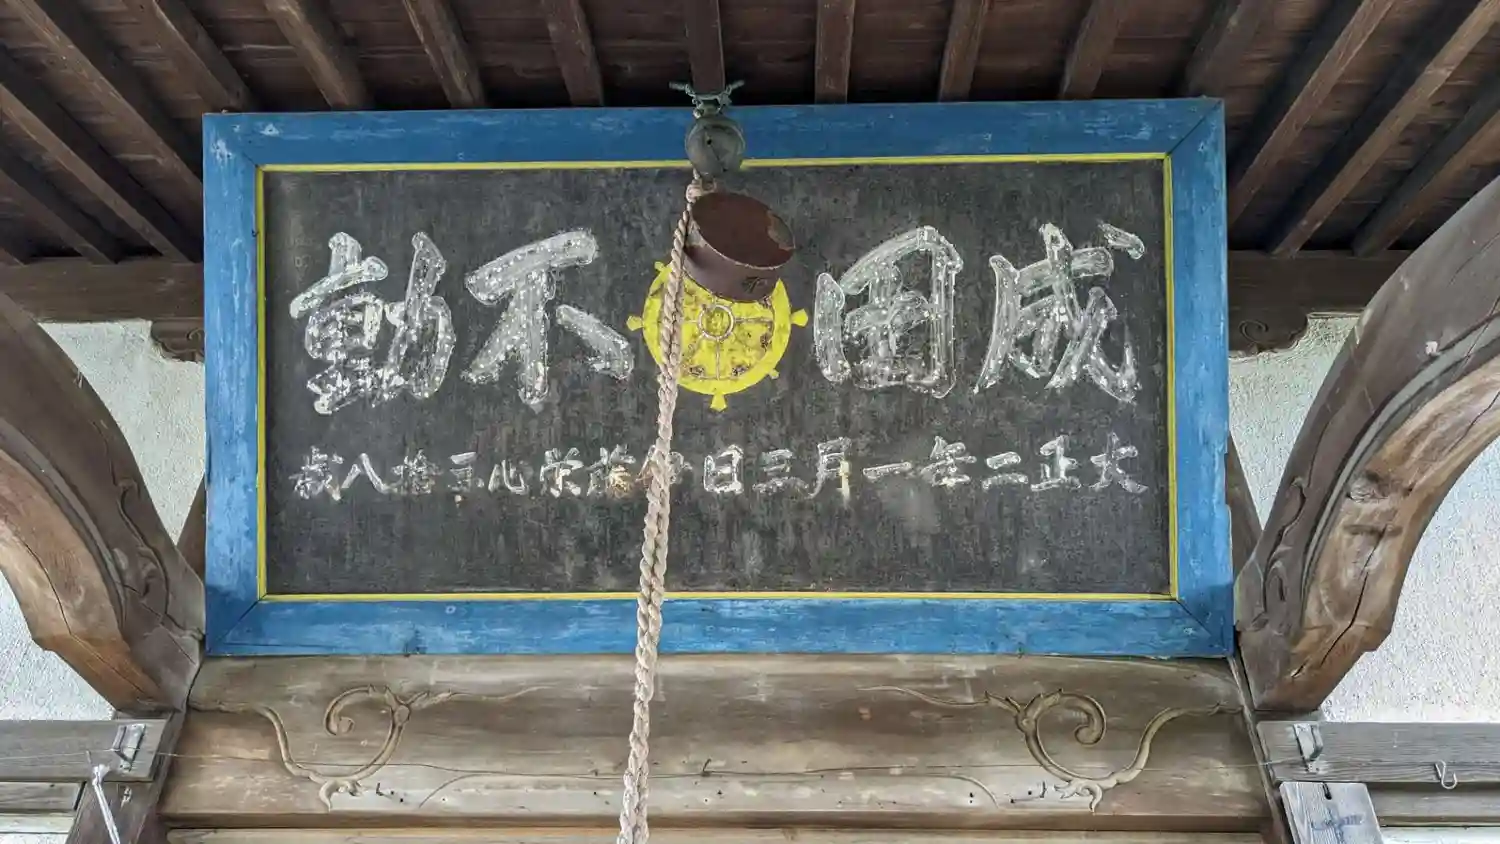 成田不動
大正二年一月三日伊藤栄心拾八歳